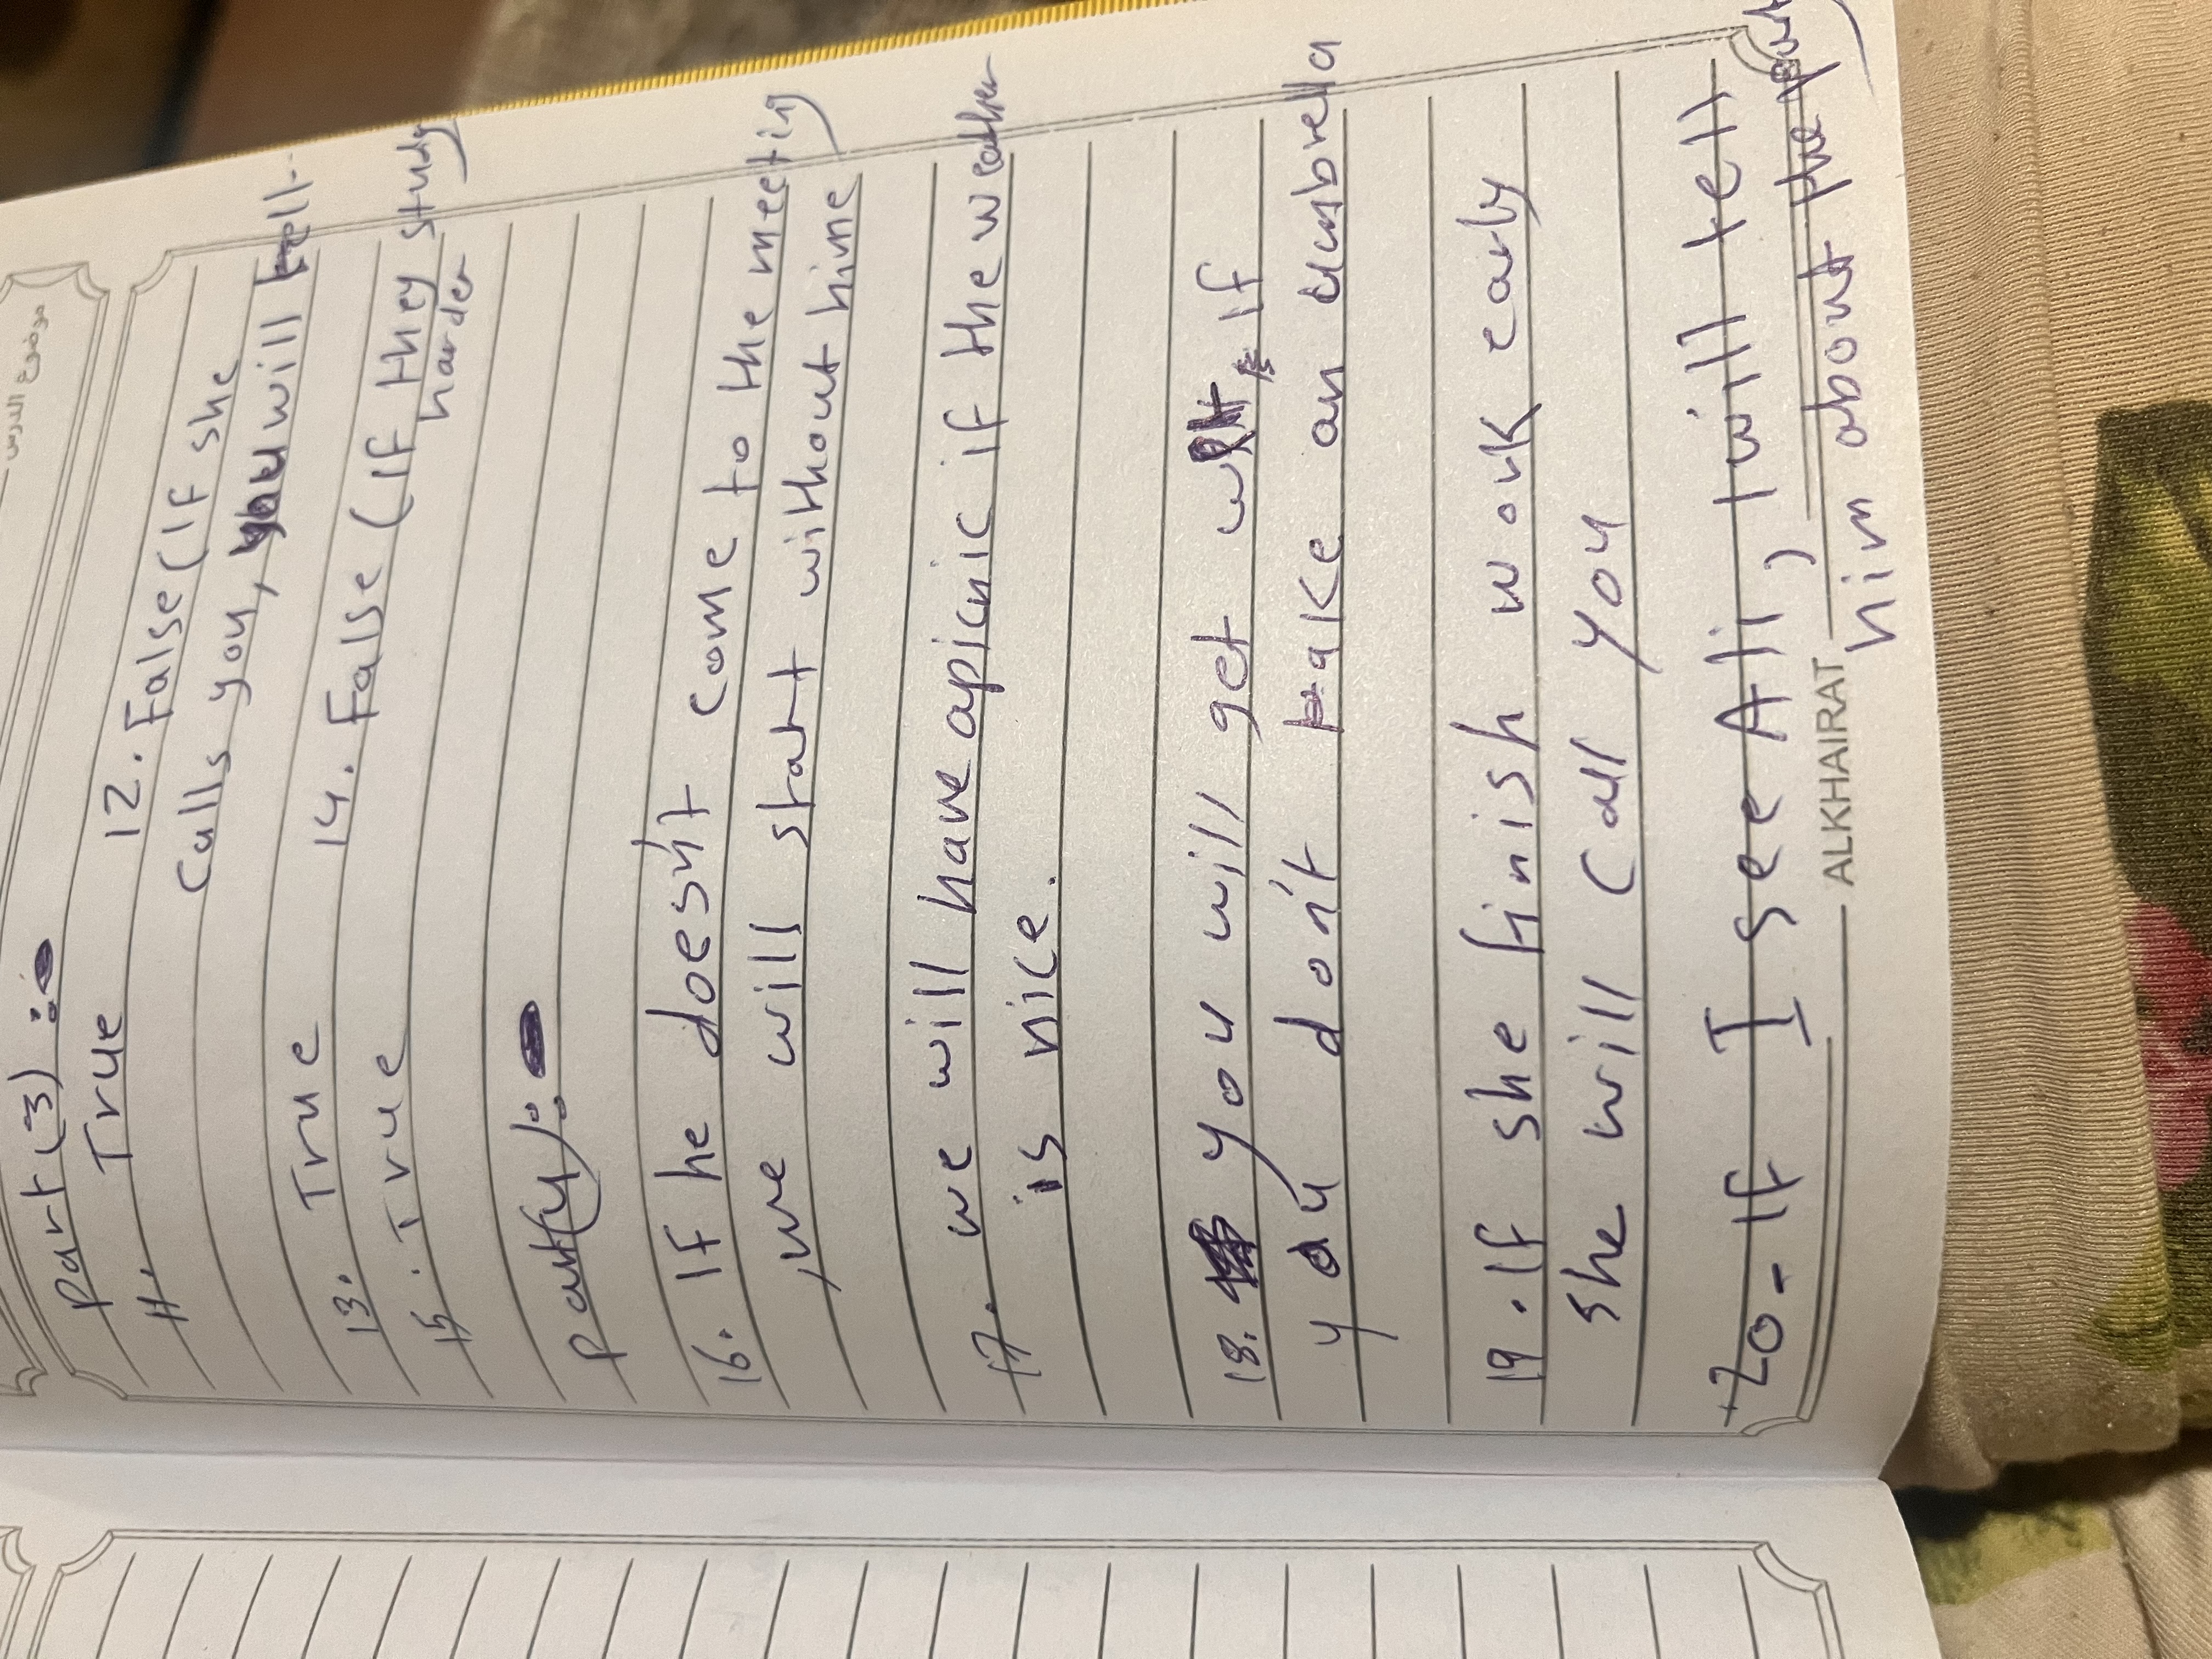 موضوع الدرس
Part (3) :
11. True 12. False (If she
calls you, you will tell.
13. True 14. False (If they study
15. True harder
Part (4) :
16. If he doesn't come to the meeting
, we will start without hime
17. we will have apicnic if the weather
is nice.
18. you will get wet if
you don't take an umbrella
19. If she finish work early
she will call you
20- If I see Ali, I will tell
him about the party
ALKHAIRAT